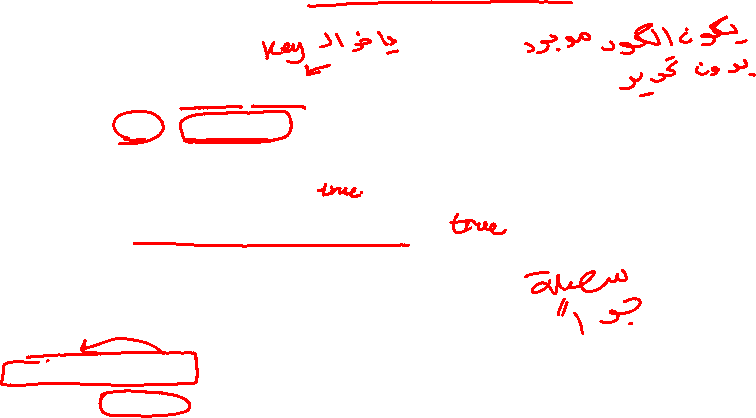 يكون الكود موجود
بدون تكرير
ياخذ الـ key
true
true